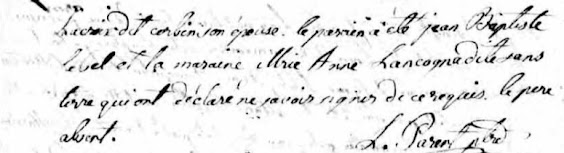 Lacroix dit corbin son épouse. le parrein a été jean Baptiste
lebel et la maraine Mrie Anne Lancogna dite sans
terre qui ont déclaré ne savoir signer de ce requis. le pere
absent.
L. Parent ptre